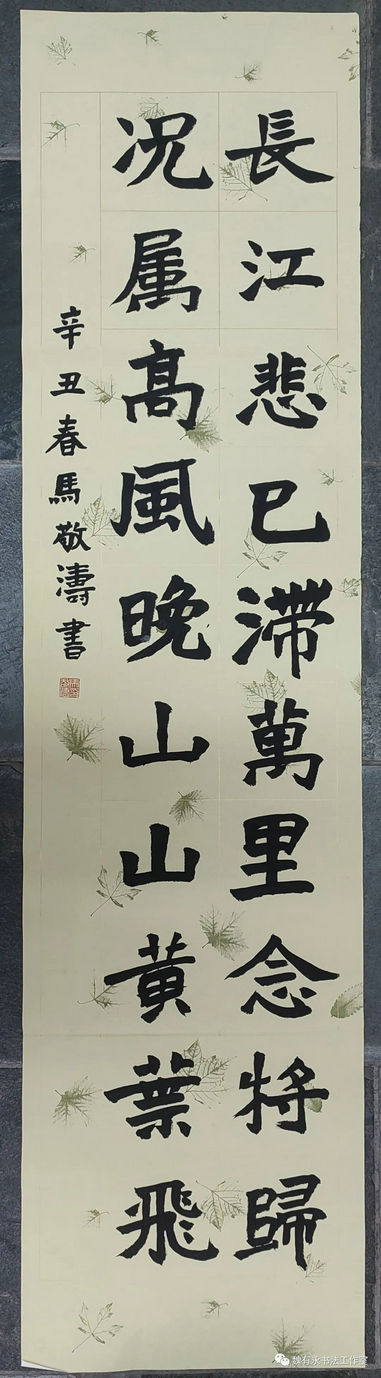 長江悲已滞萬里念将歸
况属高風晚山山黄葉飛
辛丑春馬敬濤書
魏有永书法工作室